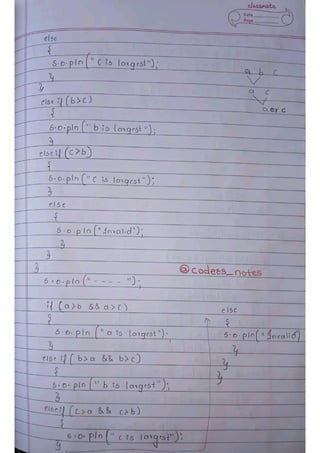 classmate
Date
Page
else
{
S.o.pln ("C is largest");
}
}
else if (b>c)
{
S.o.pln ("b is largest");
}
else if (c>b)
{
S.o.pln ("C is largest");
}
else
{
S.o.pln ("Invalid");
}
}
}
a b c
a c
a or c
@codets_notes
S.o.pln ("- - - - ");
if (a>b && a>c)
{
S.o.pln ("a is largest");
}
else if (b>a && b>c)
{
S.o.pln ("b is largest");
}
else if (c>a && c>b)
{
S.o.pln ("c is largest");
}
else
{
S.o.pln ("Invalid)
}
}
}